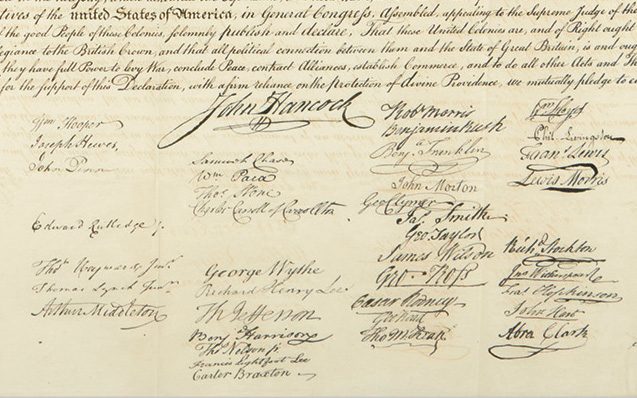 tives of the united States of America, in General Congress, Assembled, appealing to the Supreme Judge of the
the good People of these Colonies, solemnly publish and declare, That these United Colonies are, and of Right ought
egiance to the British Crown, and that all political connection between them and the State of Great Britain, is and oug
they have full Power to levy War, conclude Peace, contract Alliances, establish Commerce, and to do all other Acts and Th
for the support of this Declaration, with a firm reliance on the protection of divine Providence, we mutually pledge to e
John Hancock
Wm Hooper
Joseph Hewes,
John Penn
Edward Rutledge
Thos Heyward Junr.
Thomas Lynch Junr.
Arthur Middleton
Samuel Chase
Wm Paca
Thos. Stone
Charles Carroll of Carrollton
George Wythe
Richard Henry Lee
Th Jefferson
Benj Harrison
Thos Nelson jr.
Francis Lightfoot Lee
Carter Braxton
Robt Morris
Benjamin Rush
Benja Franklin
John Morton
Geo Clymer
Jas. Smith
Geo. Taylor
James Wilson
Geo. Ross
Caesar Rodney
Geo Read
Tho M:Kean
Phil. Livingston
Frans. Lewis
Lewis Morris
Richd. Stockton
Jno Witherspoon
Fras. Hopkinson
John Hart
Abra Clark